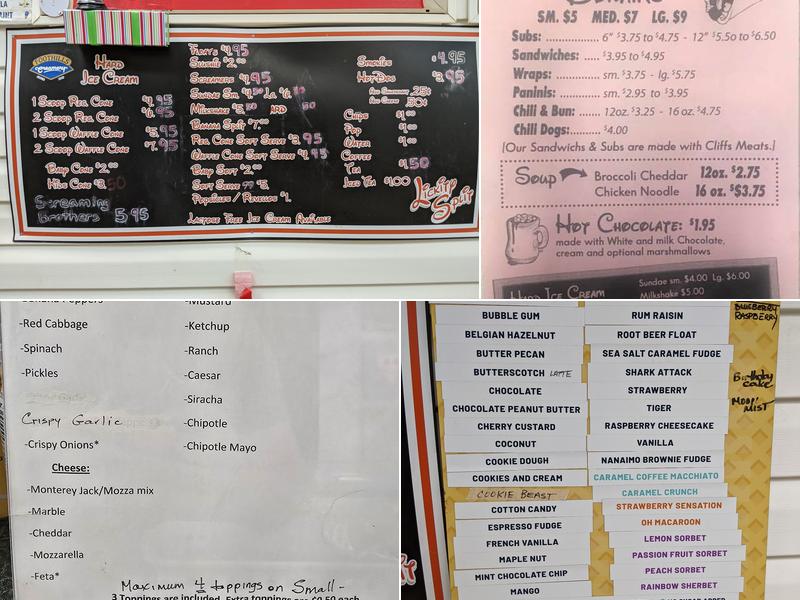 FOOTHILLS
Creamery
Hard
Ice Cream
1 Scoop Reg. Cone $4.95
2 Scoop Reg. Cone $6.95
1 Scoop Waffle Cone $5.95
2 Scoop Waffle Cone $7.95
Baby Cone $2.00
Screaming
Brothers 5.95
Floats 4.95
Slushie $2.00
Screamers 4.95
Banana Split $7.00
Reg. Cone Soft Serve $3.95
Waffle Cone Soft Serve $4.95
Baby Soft $2.00
Soft Serve
Popsicles / Revellos $1.
Lactose Free Ice Cream Available
Smokies $4.95
Hot Dog $3.95
Chips $1.00
Pop $1.00
Water $1.00
Coffee
Tea $1.50
Iced Tea $1.00
Lickity
Split
SM. $5 MED. $7 LG. $9
Subs: 6" $3.75 to $4.75 - 12" $5.50 to $6.50
Sandwiches: $3.95 to $4.95
Wraps: sm. $3.75 - lg. $5.75
Paninis: sm. $2.95 to $3.95
Chili & Bun: 12oz. $3.25 - 16 oz. $4.75
Chili Dogs: $4.00
(Our Sandwichs & Subs are made with Cliffs Meats.)
Soup Broccoli Cheddar 12oz. $2.75
Chicken Noodle 16 oz. $3.75
Hot Chocolate: $1.95
made with White and milk Chocolate,
cream and optional marshmallows
Hard Ice Cream
Sundae sm. $4.00 Lg. $6.00
Milkshake $5.00
-Red Cabbage
-Spinach
-Pickles
Crispy Garlic
-Crispy Onions*
Cheese:
-Monterey Jack/Mozza mix
-Marble
-Cheddar
-Mozzarella
-Feta*
-Mustard
-Ketchup
-Ranch
-Caesar
-Siracha
-Chipotle
-Chipotle Mayo
Maximum 4 toppings on Small -
3 Toppings are included. Extra toppings are $0.50 each
BUBBLE GUM
BELGIAN HAZELNUT
BUTTER PECAN
BUTTERSCOTCH LATTE
CHOCOLATE
CHOCOLATE PEANUT BUTTER
CHERRY CUSTARD
COCONUT
COOKIE DOUGH
COOKIES AND CREAM
COOKIE BEAST
COTTON CANDY
ESPRESSO FUDGE
FRENCH VANILLA
MAPLE NUT
MINT CHOCOLATE CHIP
MANGO
RUM RAISIN
ROOT BEER FLOAT
SEA SALT CARAMEL FUDGE
SHARK ATTACK
STRAWBERRY
TIGER
RASPBERRY CHEESECAKE
VANILLA
NANAIMO BROWNIE FUDGE
CARAMEL COFFEE MACCHIATO
CARAMEL CRUNCH
STRAWBERRY SENSATION
OH MACAROON
LEMON SORBET
PASSION FRUIT SORBET
PEACH SORBET
RAINBOW SHERBET
BLUEBERRY
RASPBERRY
Birthday
cake
MOON
MIST